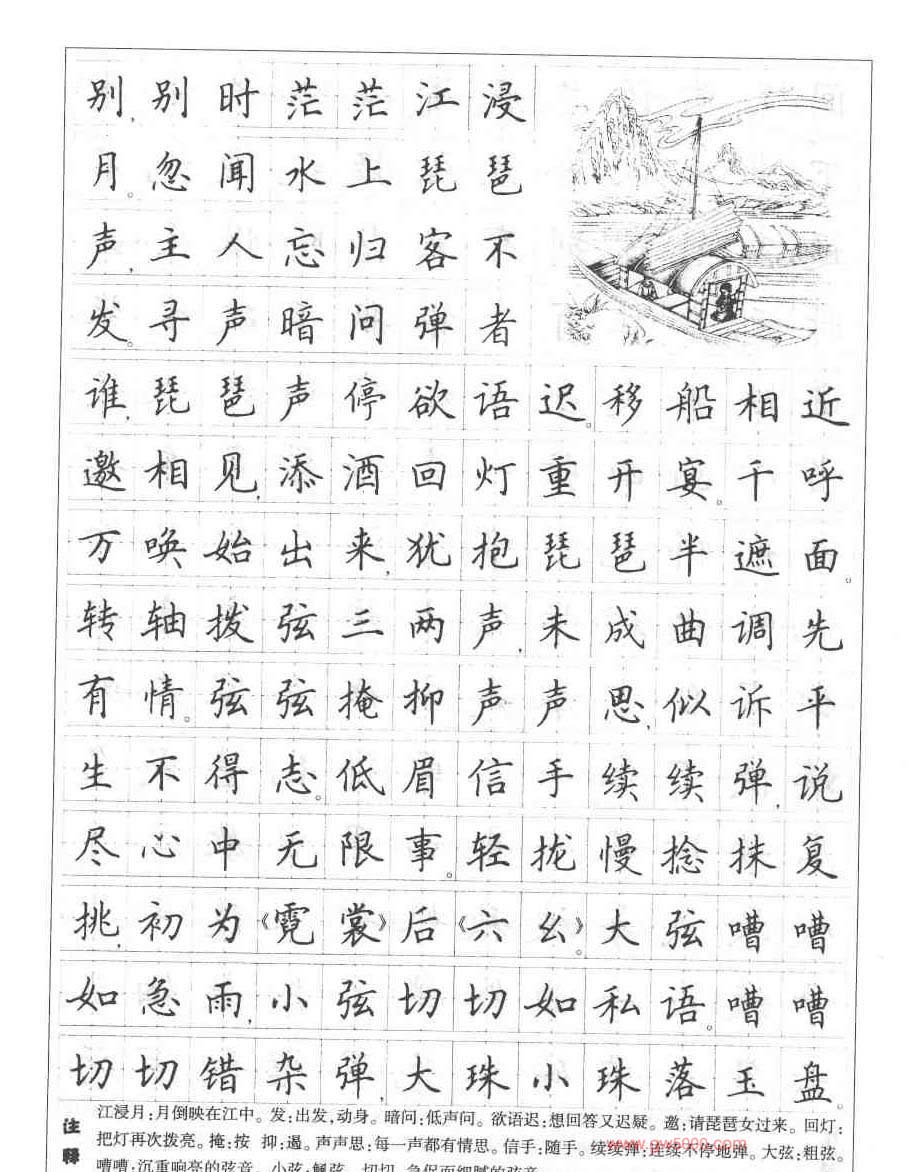 别,别时茫茫江浸
月。忽闻水上琵琶
声,主人忘归客不
发。寻声暗问弹者
谁,琵琶声停欲语迟。移船相近
邀相见,添酒回灯重开宴。千呼
万唤始出来,犹抱琵琶半遮面。
转轴拨弦三两声,未成曲调先
有情。弦弦掩抑声声思,似诉平
生不得志。低眉信手续续弹,说
尽心中无限事。轻拢慢捻抹复
挑,初为《霓裳》后《六幺》。大弦嘈嘈
如急雨,小弦切切如私语。嘈嘈
切切错杂弹,大珠小珠落玉盘。
注释
江浸月:月倒映在江中。发:出发,动身。暗问:低声问。欲语迟:想回答又迟疑。邀:请琵琶女过来。回灯:
把灯再次拨亮。掩:按 抑:遏。声声思:每一声都有情思。信手:随手。续续弹:连续不停地弹。大弦:粗弦。
嘈嘈:沉重响亮的弦音。小弦:细弦。切切:急促而细腻的弦音